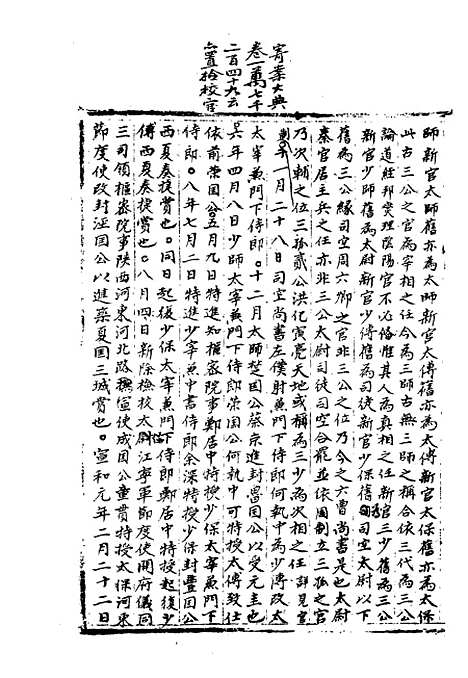 寄案大典
卷一萬七千
二百四十九云
云置檢校官
師新官太師舊亦為太師新官太傅舊亦為太傅新官太保舊亦為太保
此古三公之官為宰相之任今為三師古無三師之稱合依三代為三公
論道經邦燮理陰陽官不必備惟其人為真相之任新官三少舊為三公
新官少師舊為太尉新官少傅舊為司徒新官少保舊為司空太尉以下
舊為三公緣司空周六卿之官非三公之任乃今之六曹尚書是也太尉
秦官居主兵之任亦非三公太尉司徒司空合罷並依周制立三孤之官
乃次輔之位三孤貳公洪化寅亮天地或稱為三少為次相之任詳見官
制 年一月二十八日司空尚書左僕射兼門下侍郎何執中為少傅改太
太宰兼門下侍郎○十二月太師楚國公蔡京進封魯國公以受元圭也
六年四月八日少師太宰兼門下侍郎榮國公何執中可特授太傅致仕
依前榮國公五月九日特進知樞密院事鄭居中特授少保太宰兼門下
侍郎○八年七月二日特進少宰兼中書侍郎余深特授少保封豐國公
西夏奏捷賞也○同日起復少保太宰兼門下侍郎鄭居中特授起復少
傅西夏奏捷賞也○八月四日新除檢校太尉江寧軍節度使開府儀同
三司領樞密院事陝西河東河北路撫宣使成國公童貫特授太保河東
節度使改封涇國公以進築夏國三城賞也○宣和元年二月二十二日